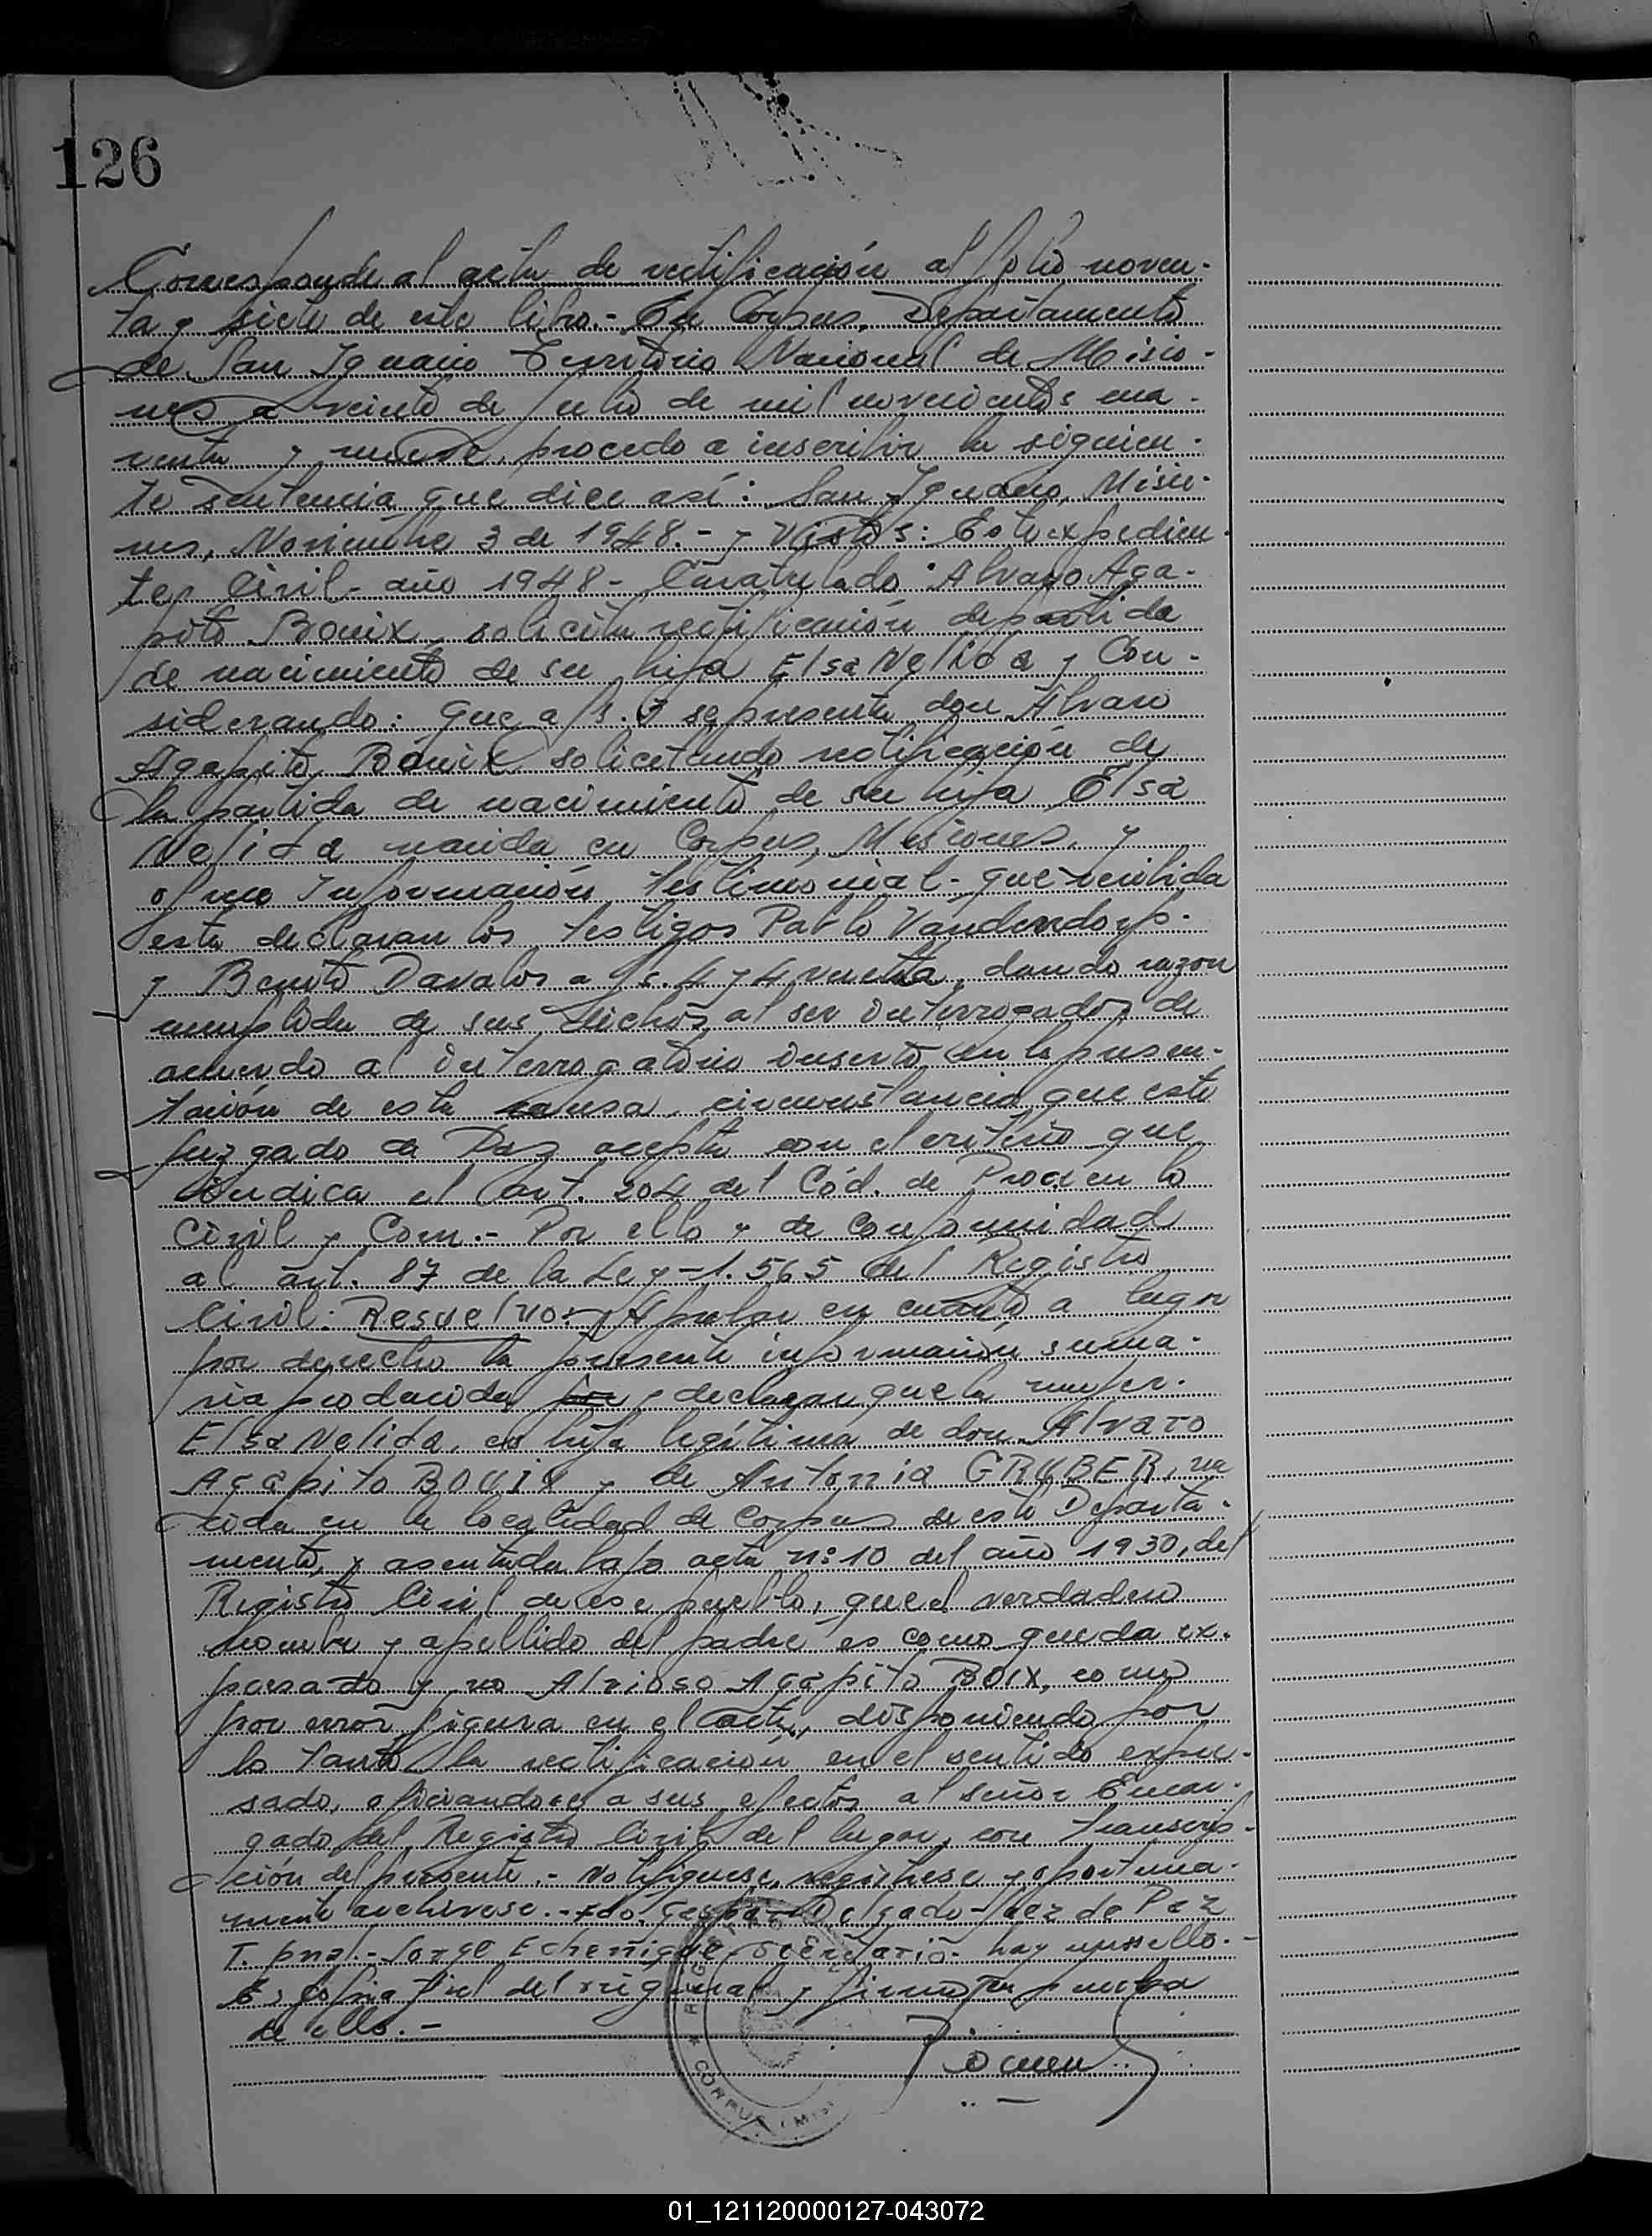 126
Corresponde al acta de rectificación al folio noven-
ta y siete de este libro.- En Corpus, Departamento
de San Ignacio Territorio Nacional de Misio-
nes a veinte de Julio de mil novecientos cua-
renta y nueve, procedo a inscribir la siguien-
te sentencia que dice así: San Ignacio, Misio-
nes, Noviembre 3 de 1948.- y Vistos: Este expedien-
te, Civil- año 1948- Caratulado: Alvaro Aga-
pito Bouix, solicita rectificación de partida
de nacimiento de su hija Elsa Nelida y Con-
siderando: Que a fs. se presenta don Alvaro
Agapito Bouix solicitando rectificación de
la partida de nacimiento de su hija Elsa
Nelida nacida en Corpus, Misiones, y
ofrece Información testimonial- que recibida
esta declaran los testigos Pablo Vanderdorp.
y Benito Davalos a fs. 4 y 4 vuelta, dando razon
cumplida de sus dichos al ser interrogados de
acuerdo al interrogatorio inserto en la presen-
tación de esta causa, circunstancia que este
Juzgado de Paz acepta con el criterio que
indica el art. 204 del Cód. de Proc. en lo
Civil y Com.- Por ello y de conformidad
al art. 87 de la Ley -1.565 del Registro
Civil: Resuelvo: Aprobar en cuanto a lugar
por derecho la presente información suma-
ria producida y declarar que la mujer.
Elsa Nelida, es hija legítima de don Alvaro
Agapito BOUIX y de Antonia GRUBER, na
cida en la localidad de Corpus de este Departa-
mento, y asentada bajo acta nº 10 del año 1930, del
Registro Civil de ese pueblo, que el verdadero
nombre y apellido del padre es como queda ex-
presado y no Alvioso Agapito BOIX, como
por error figura en el acta, disponiendo por
lo tanto la rectificación en el sentido expre-
sado, oficiandose a sus efectos al señor Encar-
gado del Registro Civil del lugar, con transcrip-
ción del presente.- Notifiquese, registrese y oportuna-
mente archivese.- Fdo. Delgado- Juez de Paz
T. pnal.- Jorge Echenique- Secretario- hay un sello.-
Es copia fiel del original y firmo en prueba
de ello.-
CORPUS (Mis.)
01_121120000127-043072